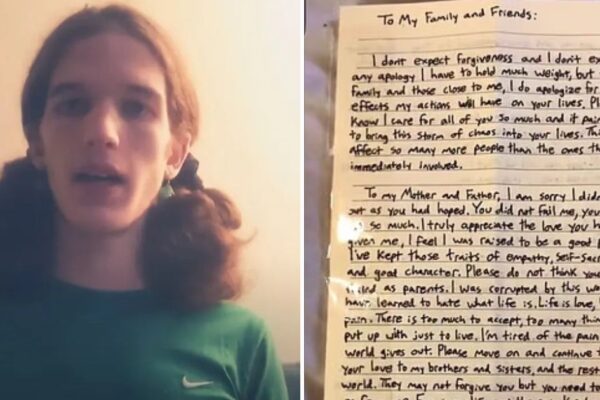 To My Family and Friends:
I dont expect forgiveness and I don't ex
any apology I have to hold much weight, but
family and those close to me, I do apologize for
effects my actions will have on your lives. Pl
Know I care for all of you so much and it pain
to bring this storm of chaos into your lives. Thi
affect so many more people than the ones th
immediately involved.
To my Mother and Father, I am sorry I didn
out as you had hoped. You did not fail me, you
so much. I truly appreciate the love you h
given me, I feel I was raised to be a good p
I've kept those traits of empathy, self-sac
and good character. Please do not think you
as parents. I was corrupted by this wo
have learned to hate what life is. Life is love,
pain. There is too much to accept, too many thin
put up with just to live. I'm tired of the pain
world gives out. Please move on and continue
your love to my brothers and sisters, and the rest
world. They may not forgive you but you need to